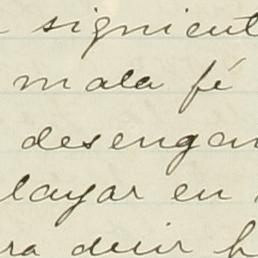 signient
mala fé
desengan
layar en
ra decir